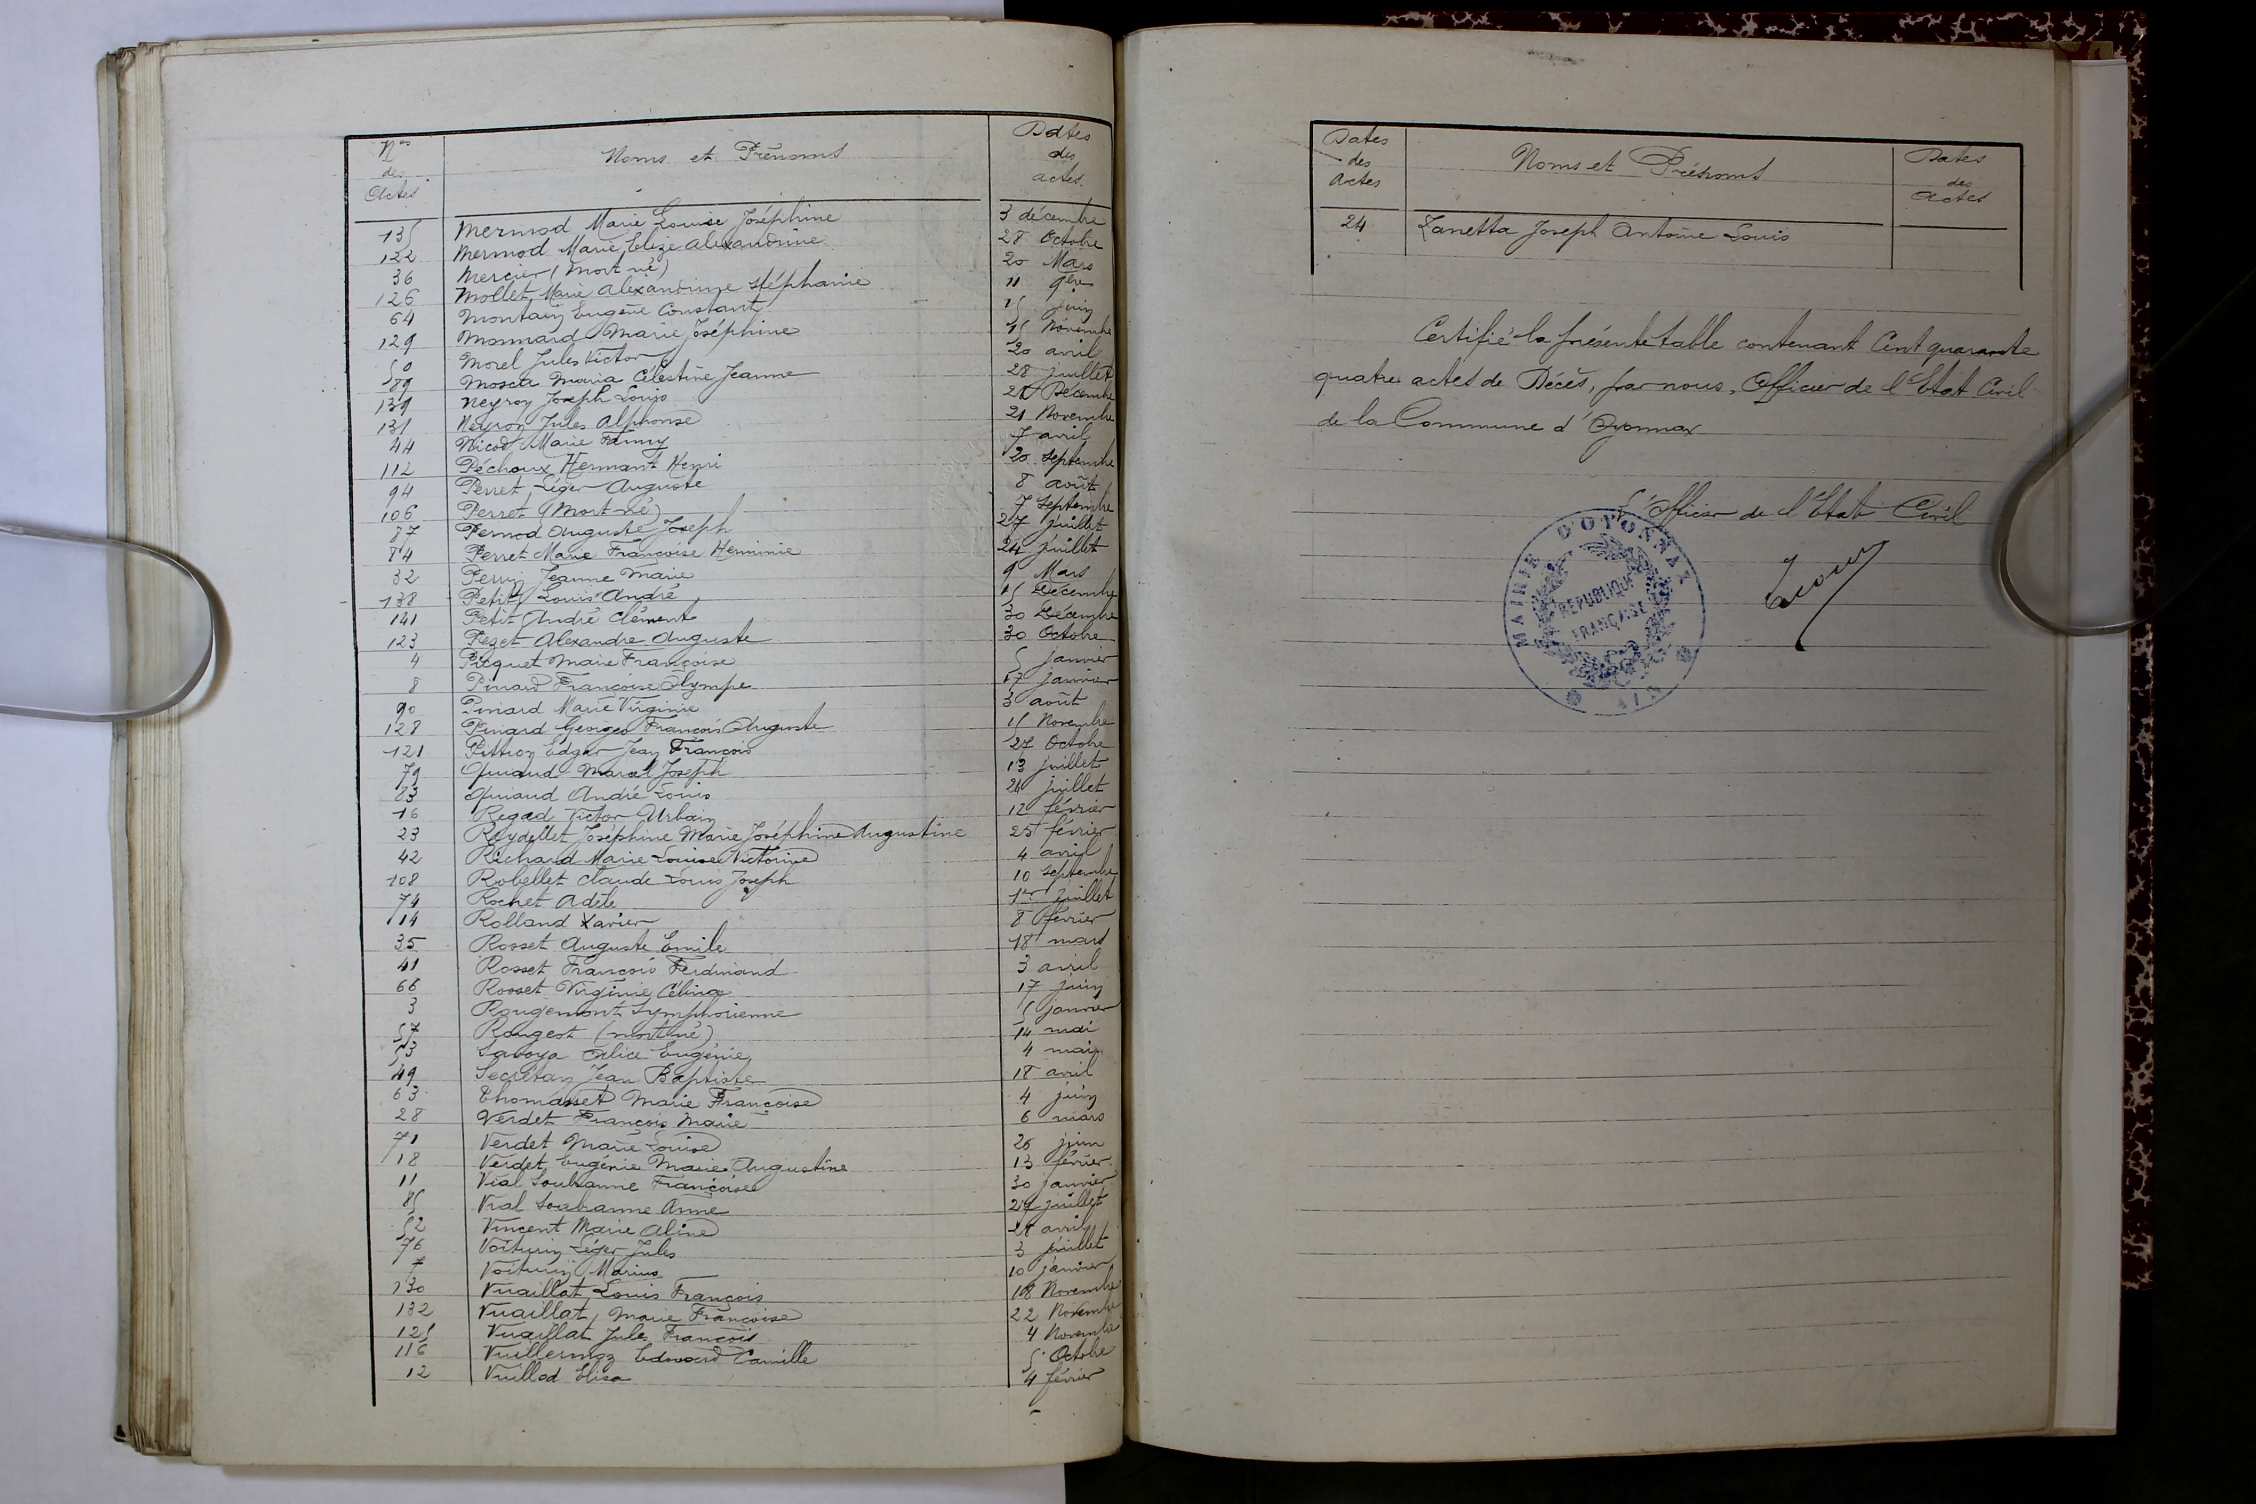 Nos des Actes Noms et Prénoms Dates des actes
135 Mermod Marie Louise Joséphine 3 décembre
122 Mermod Marie Elize Alexandrine 28 Octobre
36 Mercier (mort né) 20 Mars
126 Mollet Marie Alexandrine Stéphanie 11 9bre
64 Montain Eugène Constant 15 juin
129 Monnard Marie Joséphine 15 Novembre
50 Morel Jules Victor 20 avril
89 Mosca Maria Célestine Jeanne 28 juillet
139 Neyron Joseph Louis Décembre
131 Neyron Jules Alphonse 21 Novembre
44 Nicod Marie Fanny 7 avril
112 Péchoux Hermant Henri 20 Septembre
94 Perret Léger Auguste 8 août
106 Perret (Mort-né) 7 Septembre
87 Pernod Auguste Joseph 27 juillet
84 Perret Marie Françoise Herminie 24 juillet
32 Perrin Jeanne Marie 9 Mars
138 Petit Louis André 15 Décembre
141 Petit André Clément 30 Décembre
123 Pezet Alexandre Auguste 30 Octobre
4 Picquet Marie Françoise 5 janvier
8 Pinard Françoise Olympe 17 janvier
90 Pinard Marie Virginie 3 août
128 Pinard Georges François Auguste 15 Novembre
121 Pittion Edgar Jean François 27 Octobre
79 Quiaud Marcel Joseph 13 juillet
83 Quiaud André Louis 24 juillet
16 Regad Victor Urbain 12 février
23 Reydellet Joséphine Marie Joséphine Augustine 25 février
42 Richard Marie Louise Victorine 4 avril
108 Robellet Claude Louis Joseph 10 Septembre
74 Rochet Adèle 1er juillet
14 Rolland Xavier 8 février
35 Rosset Auguste Emile 18 mars
41 Rosset François Ferdinand 3 avril
66 Rosset Virginie Célina 17 juin
3 Rougemont Symphorienne 5 janvier
57 Rougeot (mort né) 14 mai
53 Savoya Alice Eugénie 4 mai
49 Secrétan Jean Baptiste 18 avril
63 Thomasset Marie Françoise 4 juin
28 Verdet François Marie 6 mars
71 Verdet Marie Louise 26 juin
18 Verdet Eugénie Marie Augustine 13 février
11 Vial Françoise 30 janvier
85 Vial Anne 24 juillet
52 Vincent Marie Aline 28 avril
76 Voiturin Léger Jules 3 juillet
7 Voiturin Marius 10 janvier
130 Vuaillat Louis François 18 Novembre
132 Vuaillat Marie Françoise 22 Novembre
125 Vuaillat Jules François 4 Novembre
116 Vuillermoz Edouard Camille 5 Octobre
12 Vuillod Elisa 4 février
Dates des Actes Noms et Prénoms Dates des actes
24 Zanetta Joseph Antoine Louis
Certifié la présente table contenant Cent quarante
quatre actes de Décès, par nous, Officier de l'Etat Civil
de la Commune d'Oyonnax
L'Officier de l'Etat Civil
MAIRIE D'OYONNAX
RÉPUBLIQUE
FRANÇAISE
AIN